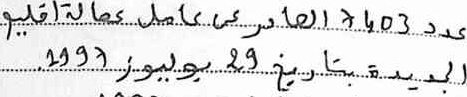 عدد 7403 الصادر عن عامل عمالة اقليم
الجديدة بتاريخ 29 يوليوز 1997.